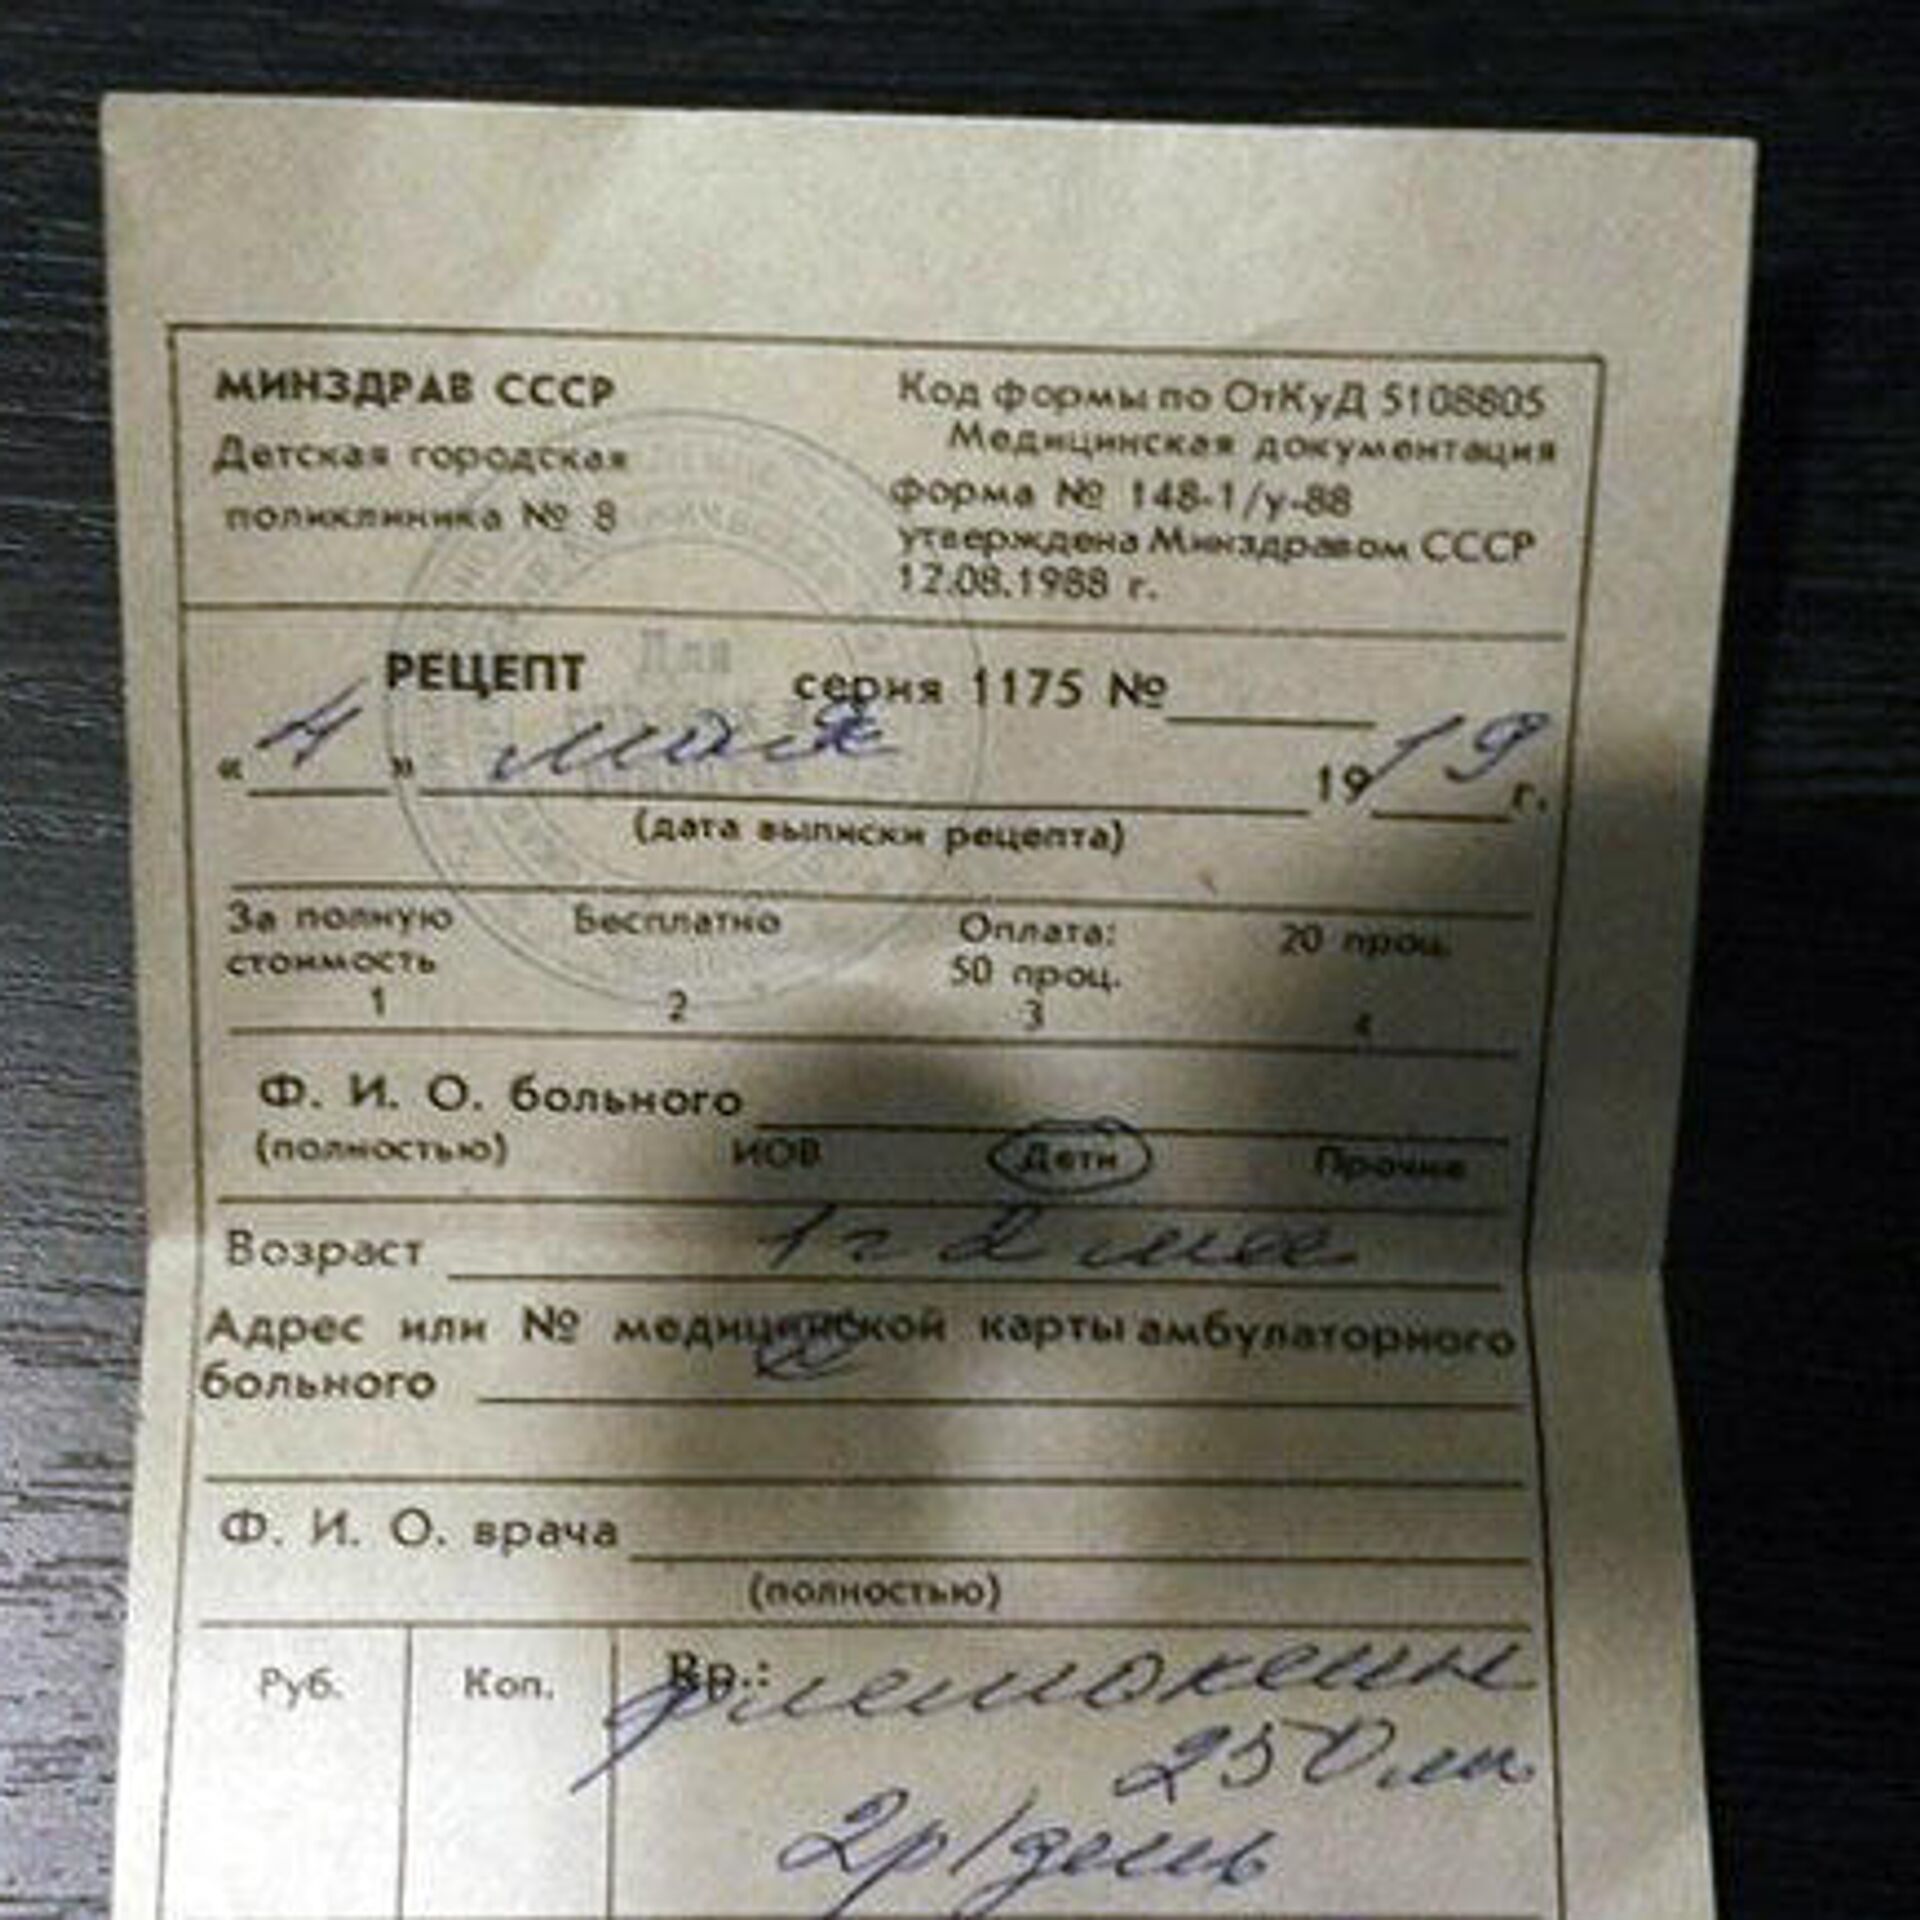 МИНЗДРАВ СССР
Детская городская
поликлиника № 8
Код формы по ОтКуД 5108805
Медицинская документация
форма № 148-1/у-88
утверждена Минздравом СССР
12.08.1988 г.
РЕЦЕПТ серия 1175 №
Для
«4» мая 19 19 г.
(дата выписки рецепта)
За полную стоимость 1
Бесплатно 2
Оплата: 50 проц. 3
20 проц. 4
Ф. И. О. больного
(полностью) ИОВ Дети Прочие
Возраст 1 г 2 мес
Адрес или № медицинской карты амбулаторного
больного
Ф. И. О. врача
(полностью)
Руб. Коп. Rp.: Флемоксин
250 мг
2р/день